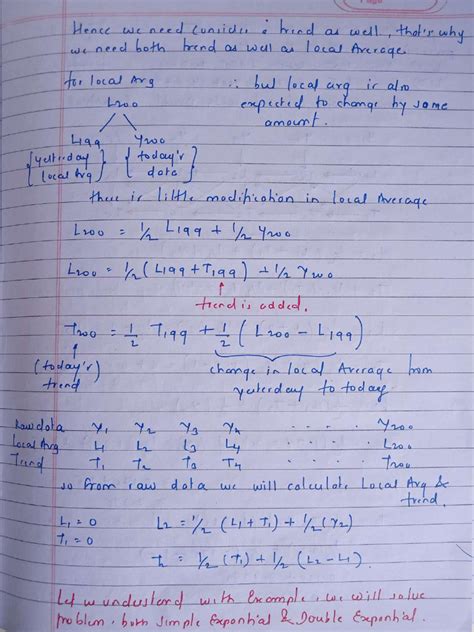 Page
Hence we need consider a trend as well, that's why
we need both trend as well as Local Average.
for local Avg ∴ but local avg is also
L200 expected to change by some
amount.
L199 Y200
{yesterday local Avg} {today's data}
there is little modification in local Average
L200 = 1/2 L199 + 1/2 Y200
L200 = 1/2 (L199 + T199) + 1/2 Y200
↑
trend is added.
T200 = 1/2 T199 + 1/2 (L200 - L199)
↑
(today's trend) change in local Average from
yesterday to today
Raw data Y1 Y2 Y3 Y4 . . . . . Y200
Local Avg L1 L2 L3 L4 . . . . . L200
Trend T1 T2 T3 T4 . . . . . T200
so from raw data we will calculate Local Avg &
trend.
L1 = 0 L2 = 1/2 (L1 + T1) + 1/2 (Y2)
T1 = 0
T2 = 1/2 (T1) + 1/2 (L2 - L1).
Let us understand with Example, we will solve
problem, both Simple Exponential & Double Exponential.